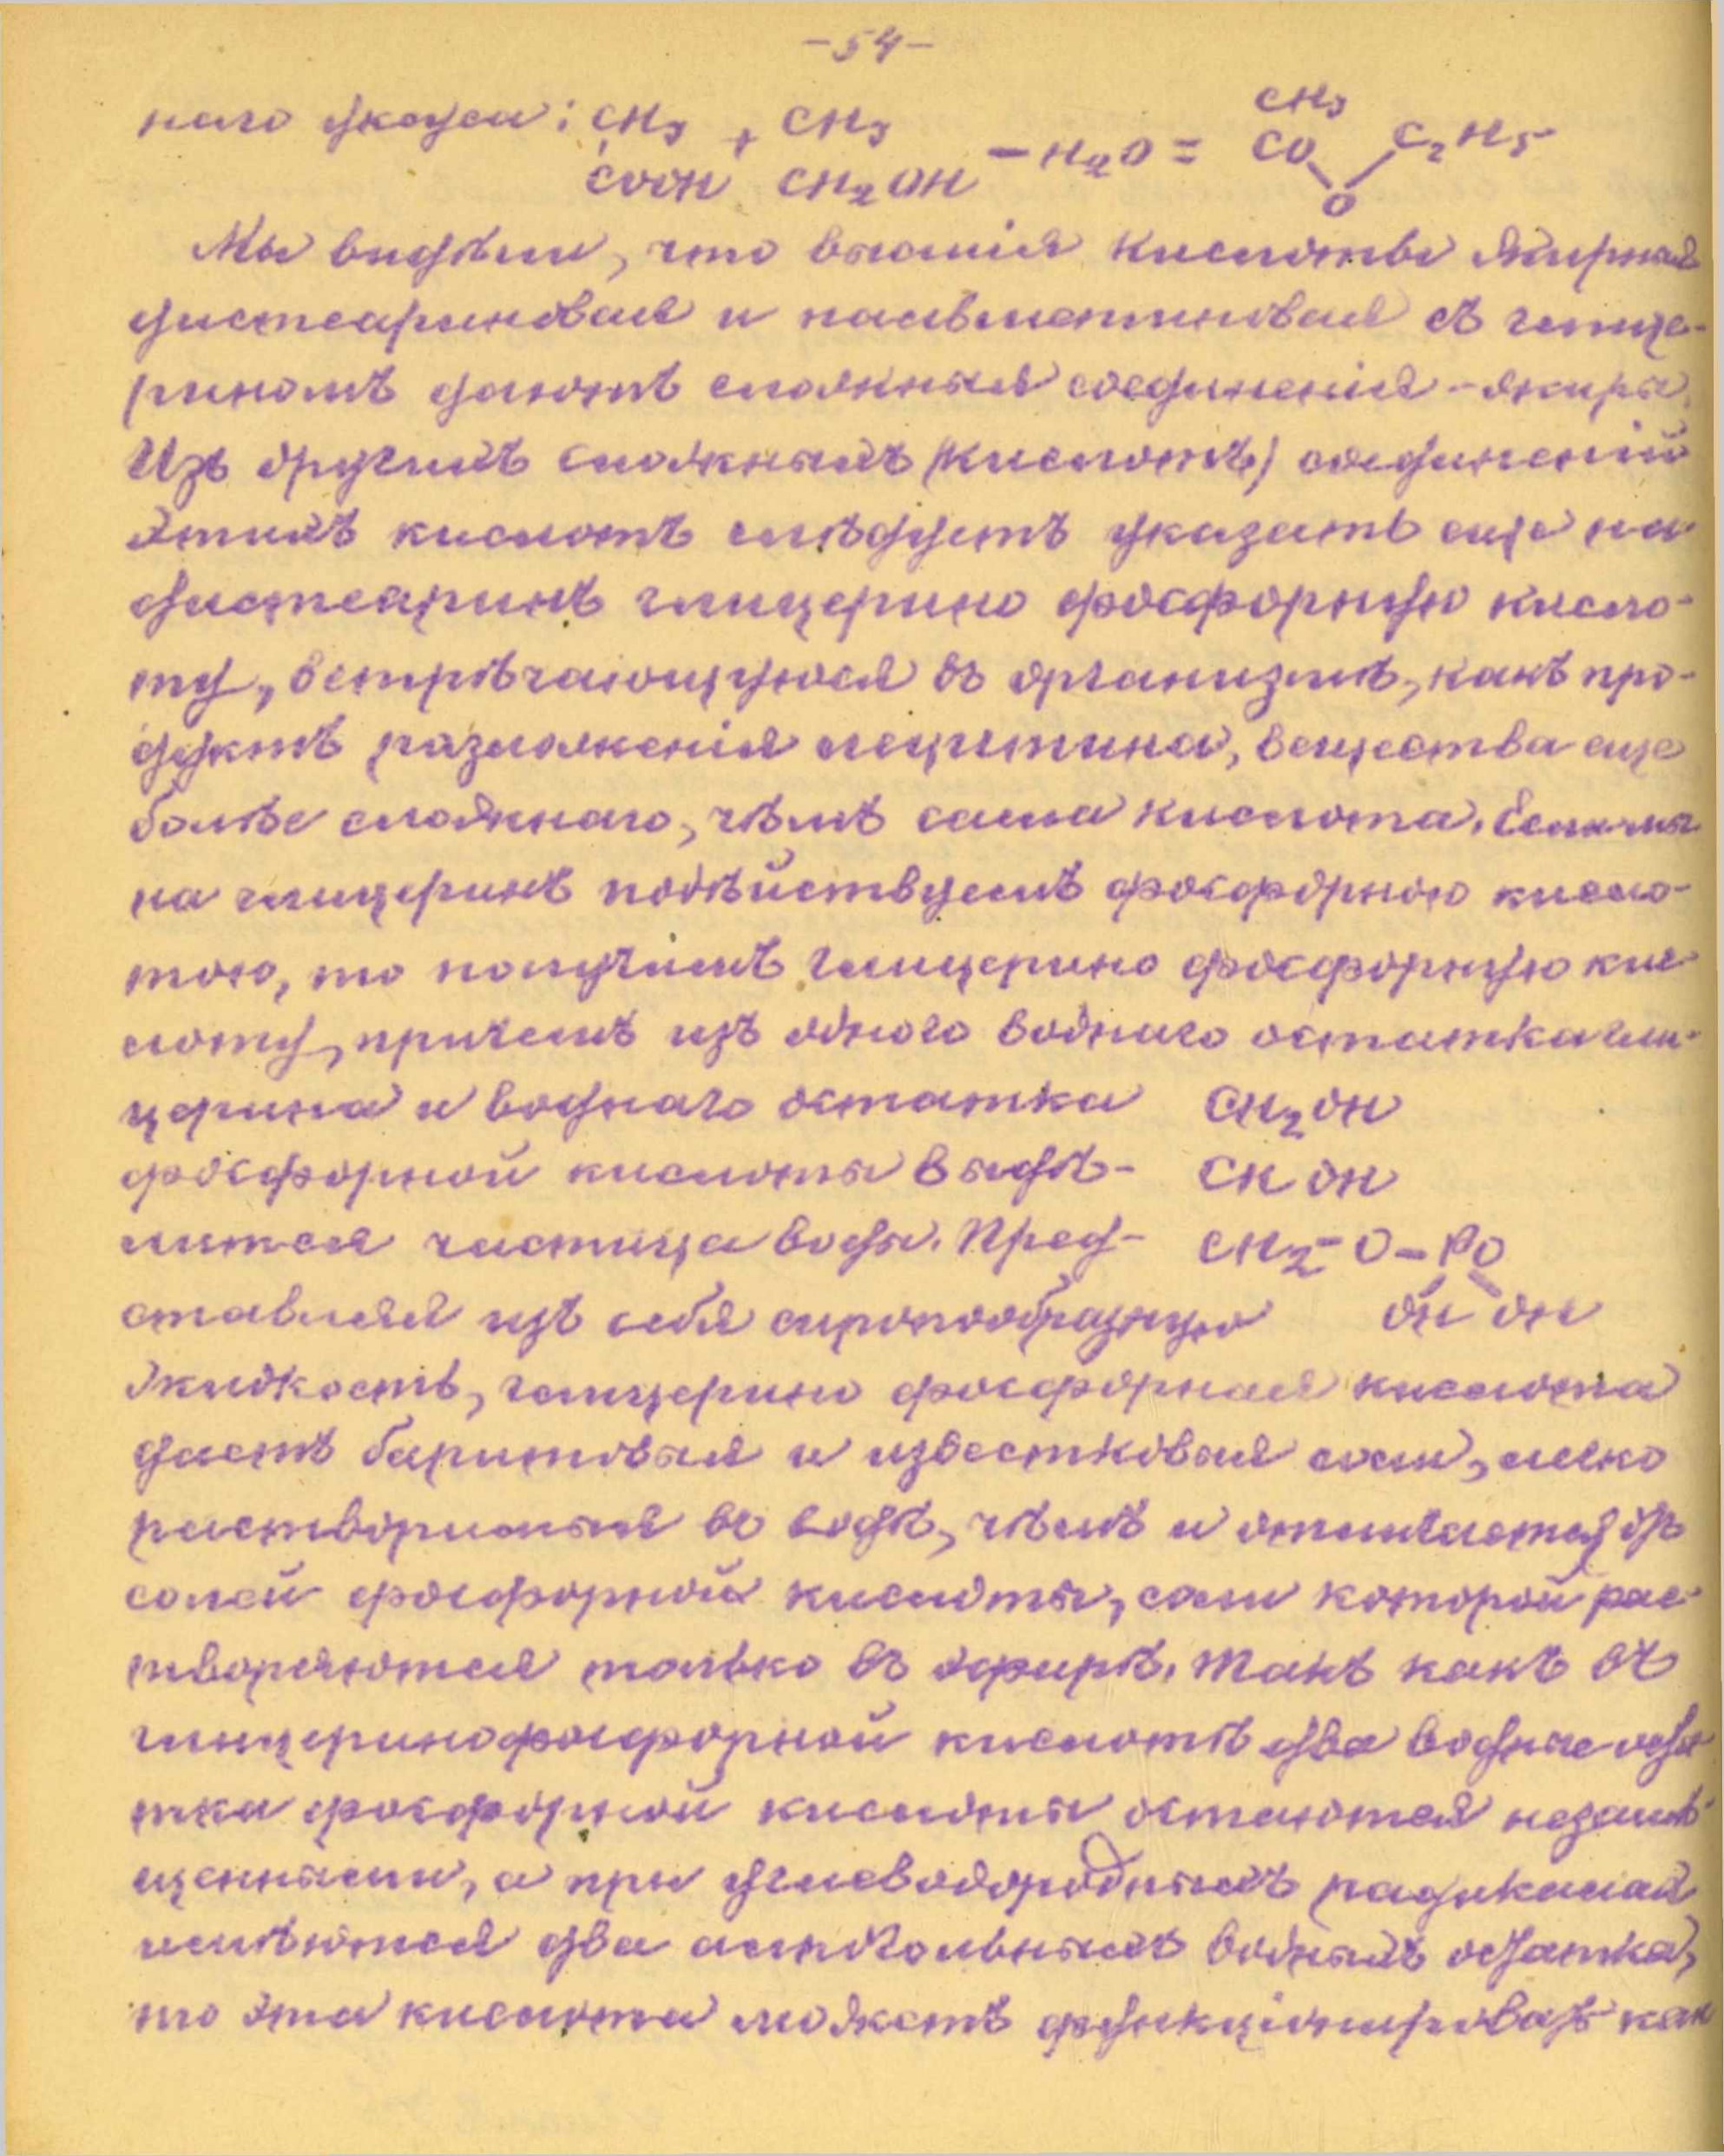 -54-
наго уксуса: CH3 + CH3 - H2O = CH3
COOH CH2OH CO C2H5
O
Мы видѣли, что высшія кислоты жирныя
дистеариновая и пальметиновая съ глице-
риномъ даютъ сложныя соединенія - жиры.
Изъ другихъ сложныхъ (кислотъ) соединеній
этихъ кислотъ слѣдуетъ указать еще на
дистеаринъ глицерино фосфорную кисло-
ту, встрѣчающуюся въ организмѣ, какъ про-
дуктъ разложенія лецитина, вещества еще
болѣе сложнаго, чѣмъ сама кислота. Если мы
на глицеринъ подѣйствуемъ фосфорною кисло-
тою, то получимъ глицерино фосфорную кис-
лоту, причемъ изъ одного воднаго остатка гли-
церина и воднаго остатка CH2OH
фосфорной кислоты выдѣ- CHOH
лится частица воды. Пред- CH2-O-PO
ставляя изъ себя сиропообразную OH OH
жидкость, глицерино фосфорная кислота
даетъ баритовыя и известковыя соли, легко
растворимыя въ водѣ, чѣмъ и отличается отъ
солей фосфорной кислоты, соли которой рас-
творяются только въ эфирѣ. Такъ какъ въ
глицеринофосфорной кислотѣ два водные оста
тка фосфорной кислоты остаются незамѣ-
щенными, а при углеводородныхъ радикалахъ
имѣются два алкогольныхъ водныхъ остатка,
то эта кислота можетъ функціонировать как